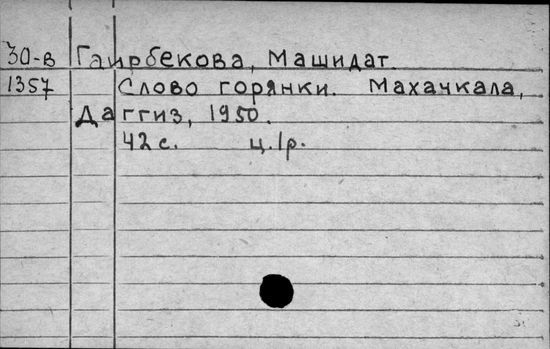 30-в Гаирбекова, Машидат.
1357 Слово горянки. Махачкала,
Даггиз, 1950.
42 с. ц. 1р.